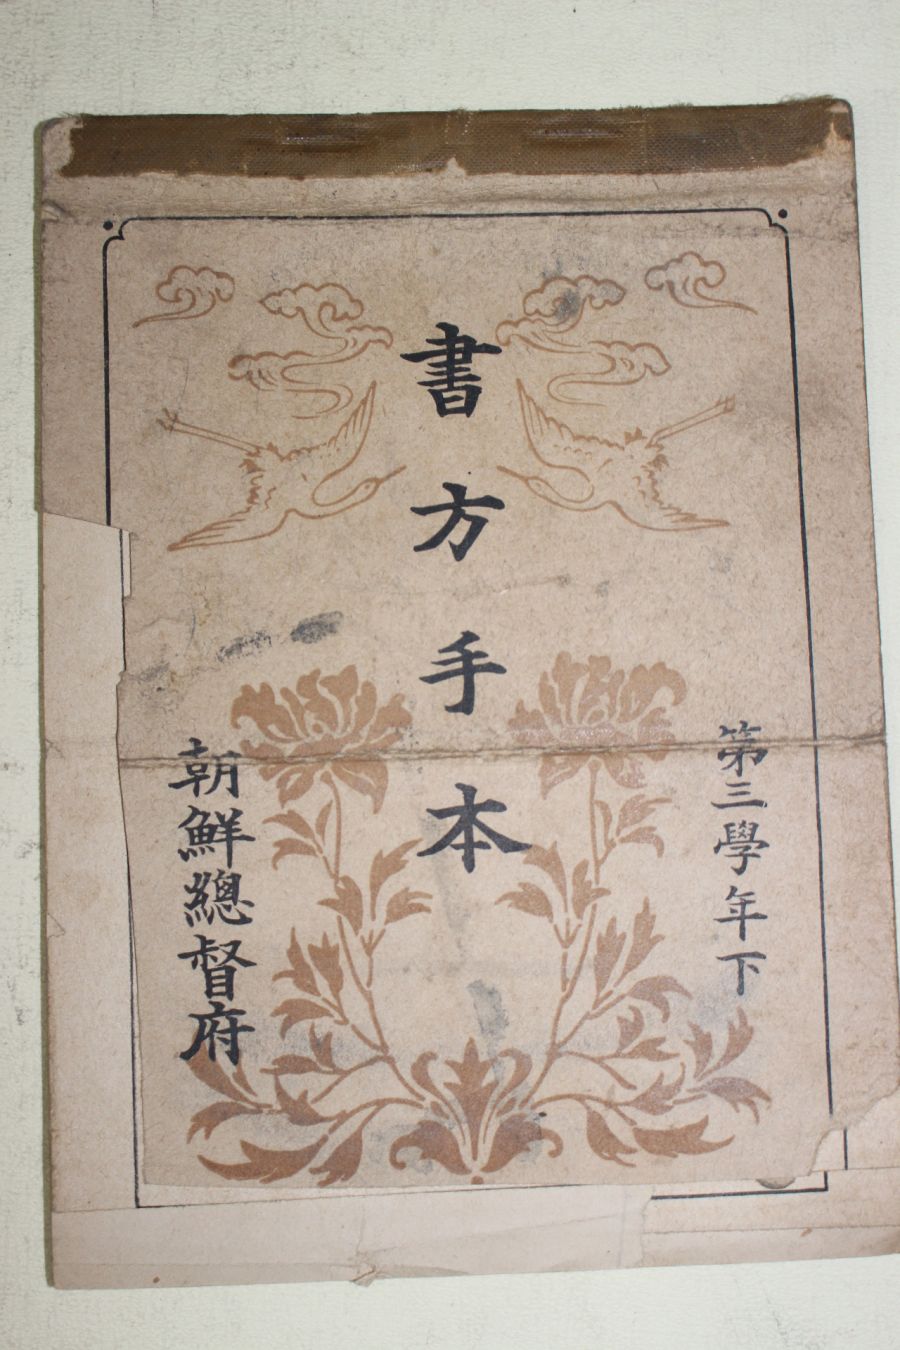 第三學年下
書方手本
朝鮮總督府